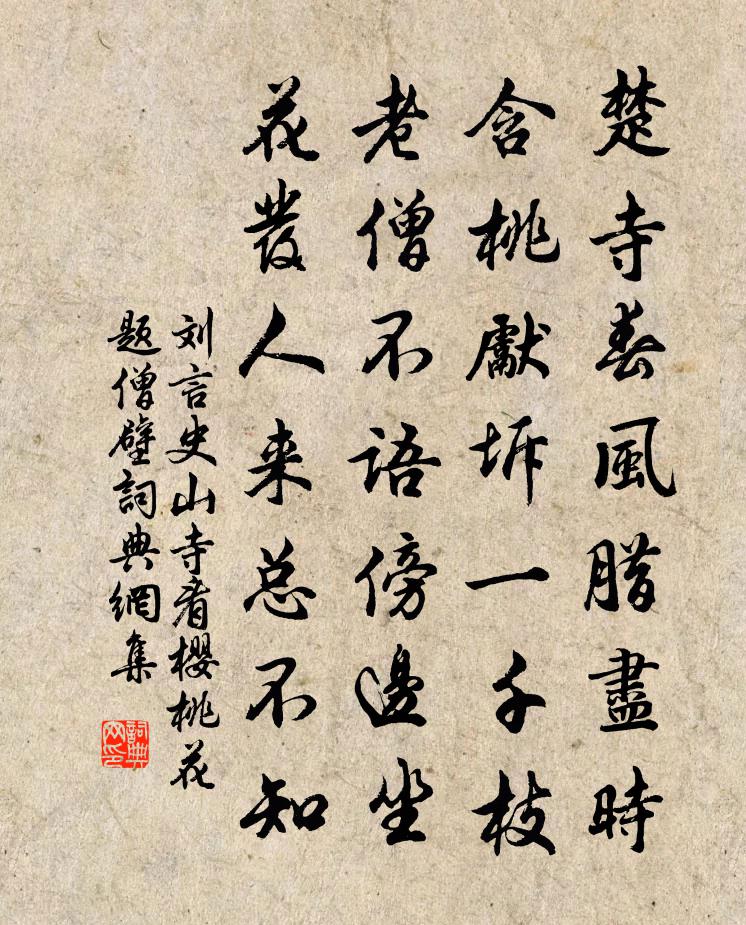 楚寺春風腊盡時
含桃獻坼一千枝
老僧不語傍邊坐
花發人来总不知
刘言史山寺看櫻桃花
題僧壁詞典網集
詞典网印